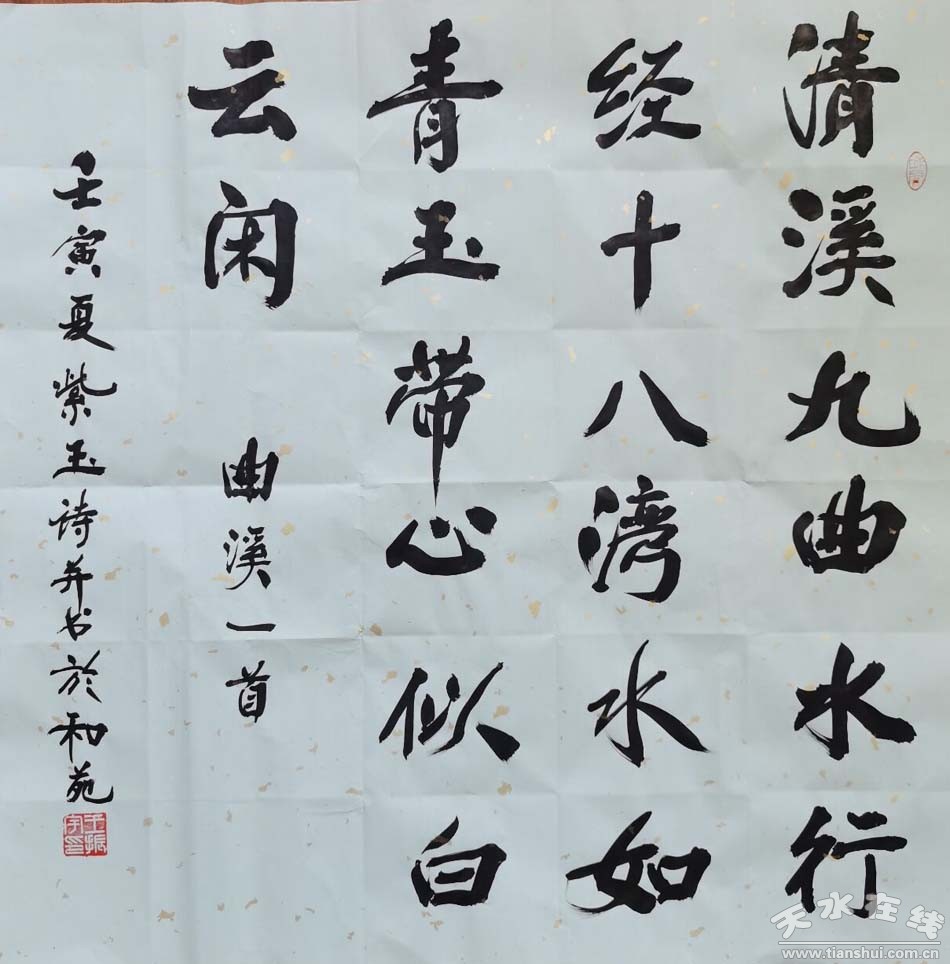 清溪九曲水行
经十八湾水如
青玉带心似白
云闲 曲溪一首
壬寅夏紫玉诗并书於和苑
天水在线
www.tianshui.com.cn